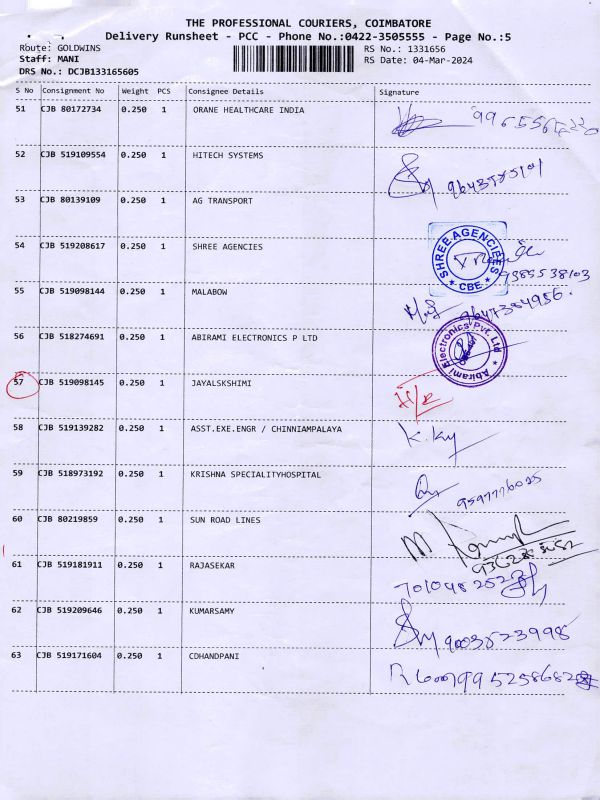 THE PROFESSIONAL COURIERS, COIMBATORE
Delivery Runsheet - PCC - Phone No.:0422-3505555 - Page No.:5
Route: GOLDWINS
RS No.: 1331656
Staff: MANI
RS Date: 04-Mar-2024
DRS No.: DCJB133165605
S No Consignment No Weight PCS Consignee Details Signature
51 CJB 80172734 0.250 1 ORANE HEALTHCARE INDIA
52 CJB 519109554 0.250 1 HITECH SYSTEMS
53 CJB 80139109 0.250 1 AG TRANSPORT
54 CJB 519208617 0.250 1 SHREE AGENCIES
SHREE AGENCIES
CBE
9385538103
55 CJB 519098144 0.250 1 MALABOW
9647384956.
56 CJB 518274691 0.250 1 ABIRAMI ELECTRONICS P LTD
Abirami Electronics Pvt. Ltd
57 CJB 519098145 0.250 1 JAYALSKSHIMI
58 CJB 519139282 0.250 1 ASST.EXE.ENGR / CHINNIAMPALAYA
K.Ky
59 CJB 518973192 0.250 1 KRISHNA SPECIALITYHOSPITAL
9597776025
60 CJB 80219859 0.250 1 SUN ROAD LINES
61 CJB 519181911 0.250 1 RAJASEKAR
62 CJB 519209646 0.250 1 KUMARSAMY
9003523998
63 CJB 519171604 0.250 1 CDHANDPANI